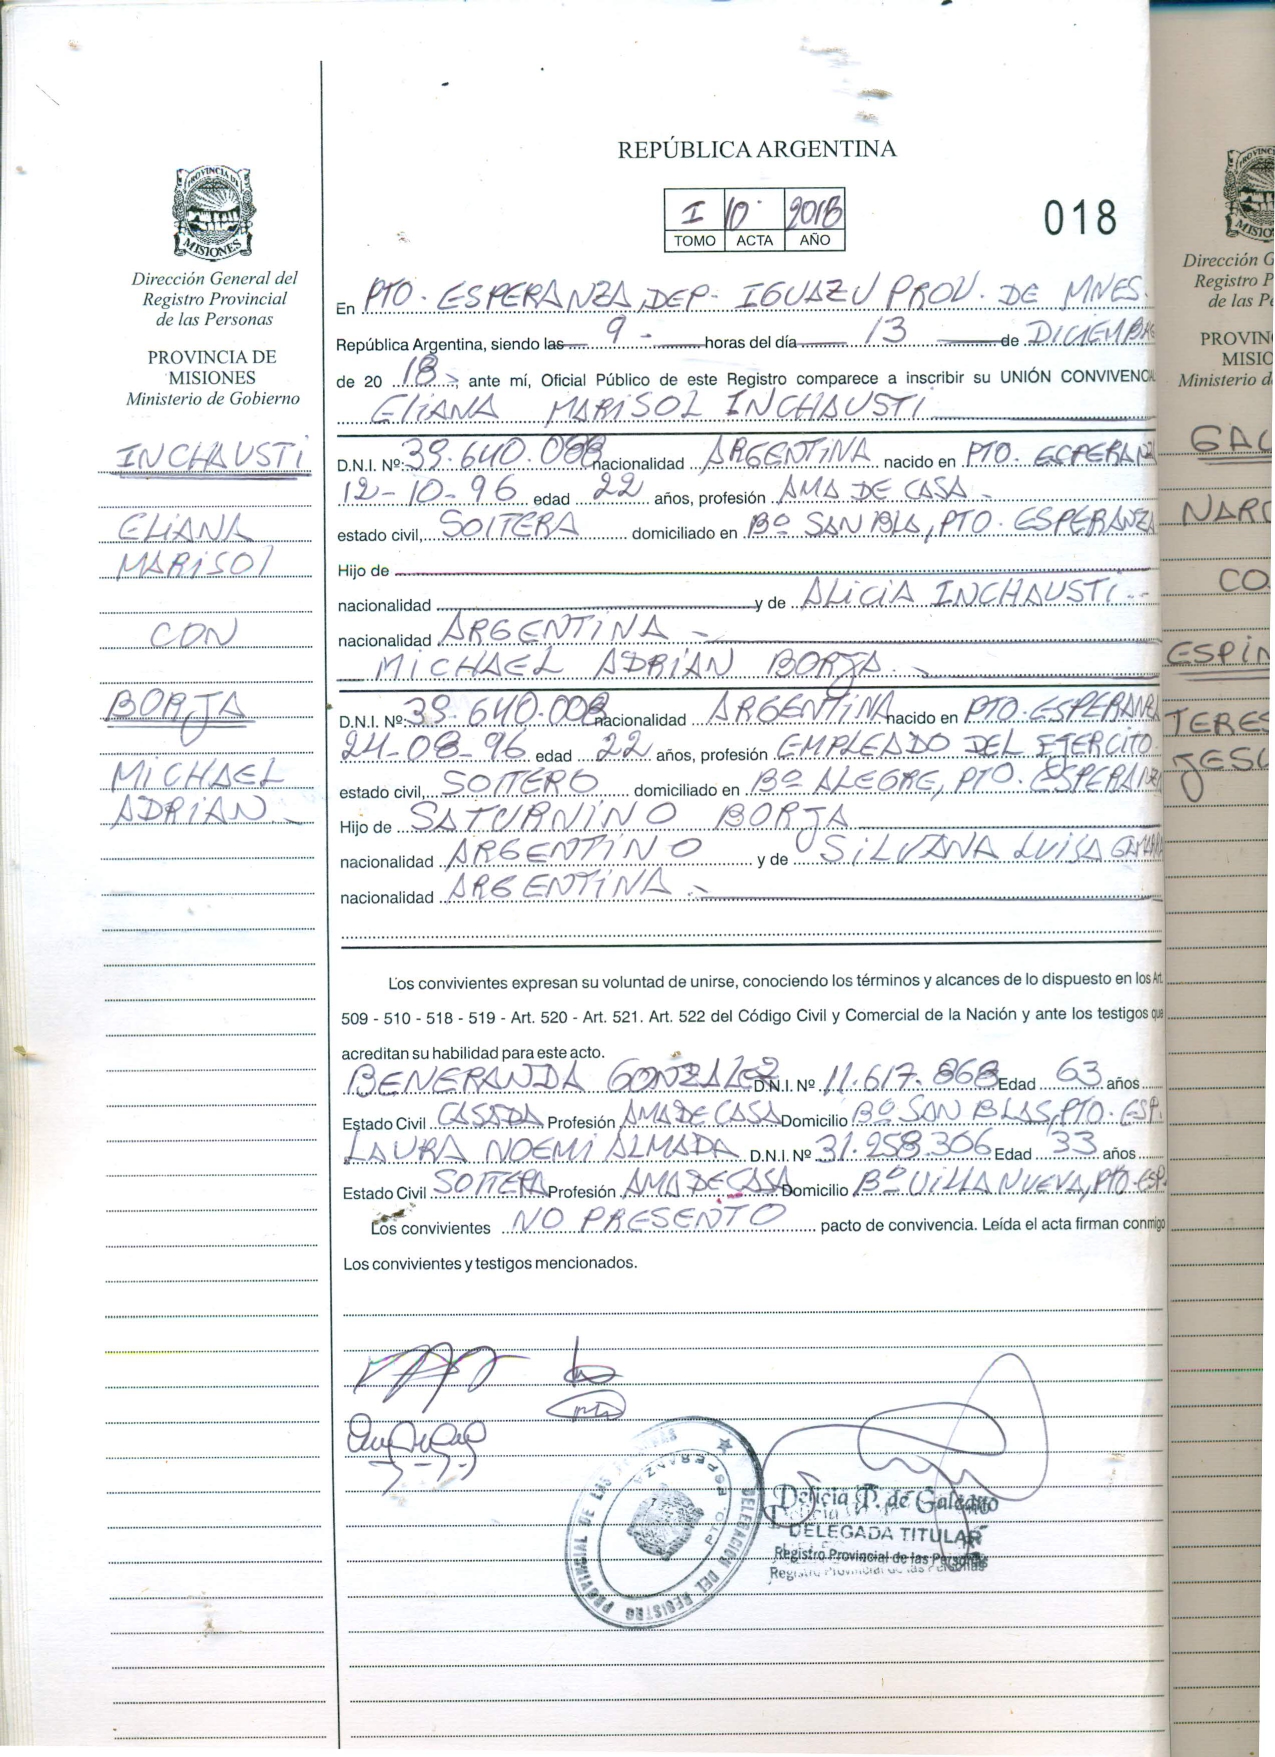 REPÚBLICA ARGENTINA
I 10 2018
TOMO ACTA AÑO
018
PROVINCIA DE
MISIONES
Dirección General del
Registro Provincial
de las Personas
PROVINCIA DE
MISIONES
Ministerio de Gobierno
INCHAUSTI
ELIANA
MARISOL
CON
BORJA
MICHAEL
ADRIAN
En PTO. ESPERANZA, DEP. IGUAZU PROV. DE MNES.
República Argentina, siendo las 9 horas del día 13 de DICIEMBRE
de 20 18, ante mí, Oficial Público de este Registro comparece a inscribir su UNIÓN CONVIVENCIAL
ELIANA MARISOL INCHAUSTI
D.N.I. Nº: 39.640.088 nacionalidad ARGENTINA nacido en PTO. ESPERANZA
12-10-96 edad 22 años, profesión AMA DE CASA
estado civil, SOLTERA domiciliado en Bº SAN BLA, PTO. ESPERANZA
Hijo de
nacionalidad y de ALICIA INCHAUSTI
nacionalidad ARGENTINA
MICHAEL ADRIAN BORJA
D.N.I. Nº: 39.640.008 nacionalidad ARGENTINA nacido en PTO. ESPERANZA
24-08-96 edad 22 años, profesión EMPLEADO DEL EJERCITO
estado civil, SOLTERO domiciliado en Bº ALEGRE, PTO. ESPERANZA
Hijo de SATURNINO BORJA
nacionalidad ARGENTINO y de SILVANA LUISA
nacionalidad ARGENTINA
Los convivientes expresan su voluntad de unirse, conociendo los términos y alcances de lo dispuesto en los Art.
509 - 510 - 518 - 519 - Art. 520 - Art. 521. Art. 522 del Código Civil y Comercial de la Nación y ante los testigos que
acreditan su habilidad para este acto.
BENERANDA GONZALEZ D.N.I. Nº 11.617.868 Edad 63 años
Estado Civil CASADA Profesión AMA DE CASA Domicilio Bº SAN BLAS, PTO. ESP.
LAURA NOEMI ALMADA D.N.I. Nº 31.258.306 Edad 33 años
Estado Civil SOLTERA Profesión AMA DE CASA Domicilio Bº VILLA NUEVA, PTO. ESP.
Los convivientes NO PRESENTO pacto de convivencia. Leída el acta firman conmigo
Los convivientes y testigos mencionados.
DELEGACION DEL REGISTRO PROVINCIAL DE LAS
PTO. ESPERANZA
Delicia P. de Galeano
DELEGADA TITULAR
Registro Provincial de las Personas
Dirección G
Registro P
de las Pe
PROVIN
MISIO
Ministerio d
CO
ESPIN
TERES
JESU